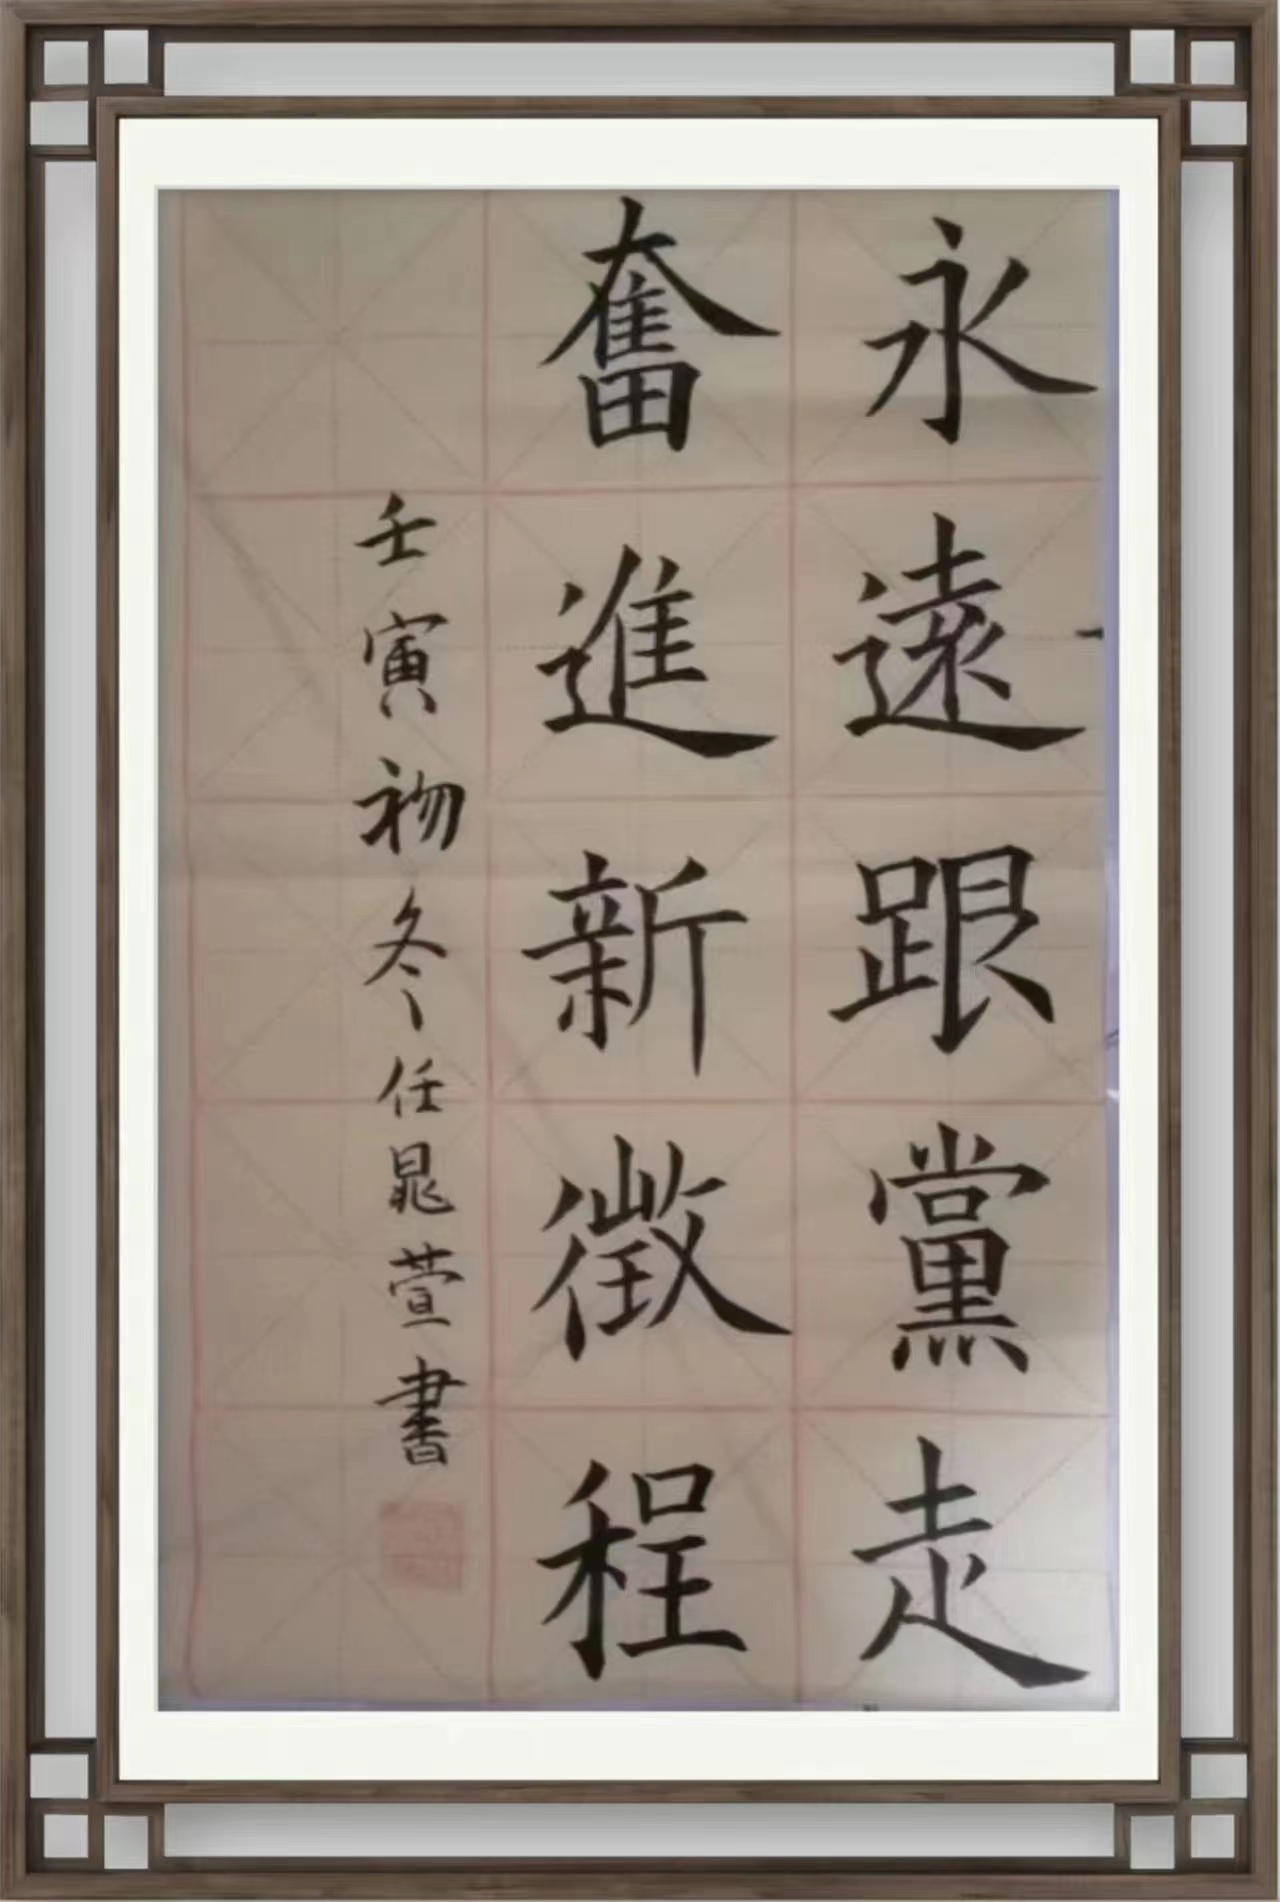 永遠跟黨走
奮進新徵程
壬寅初冬任晁萱書